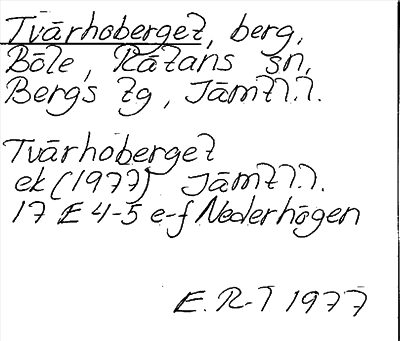 Tvärhoberget, berg,
Böle, Rätans sn,
Bergs tg, Jämtl.
Tvärhoberget
ek (1977) Jämtl.
17 E 4-5 e-f Nederhögen
E. R-T 1977